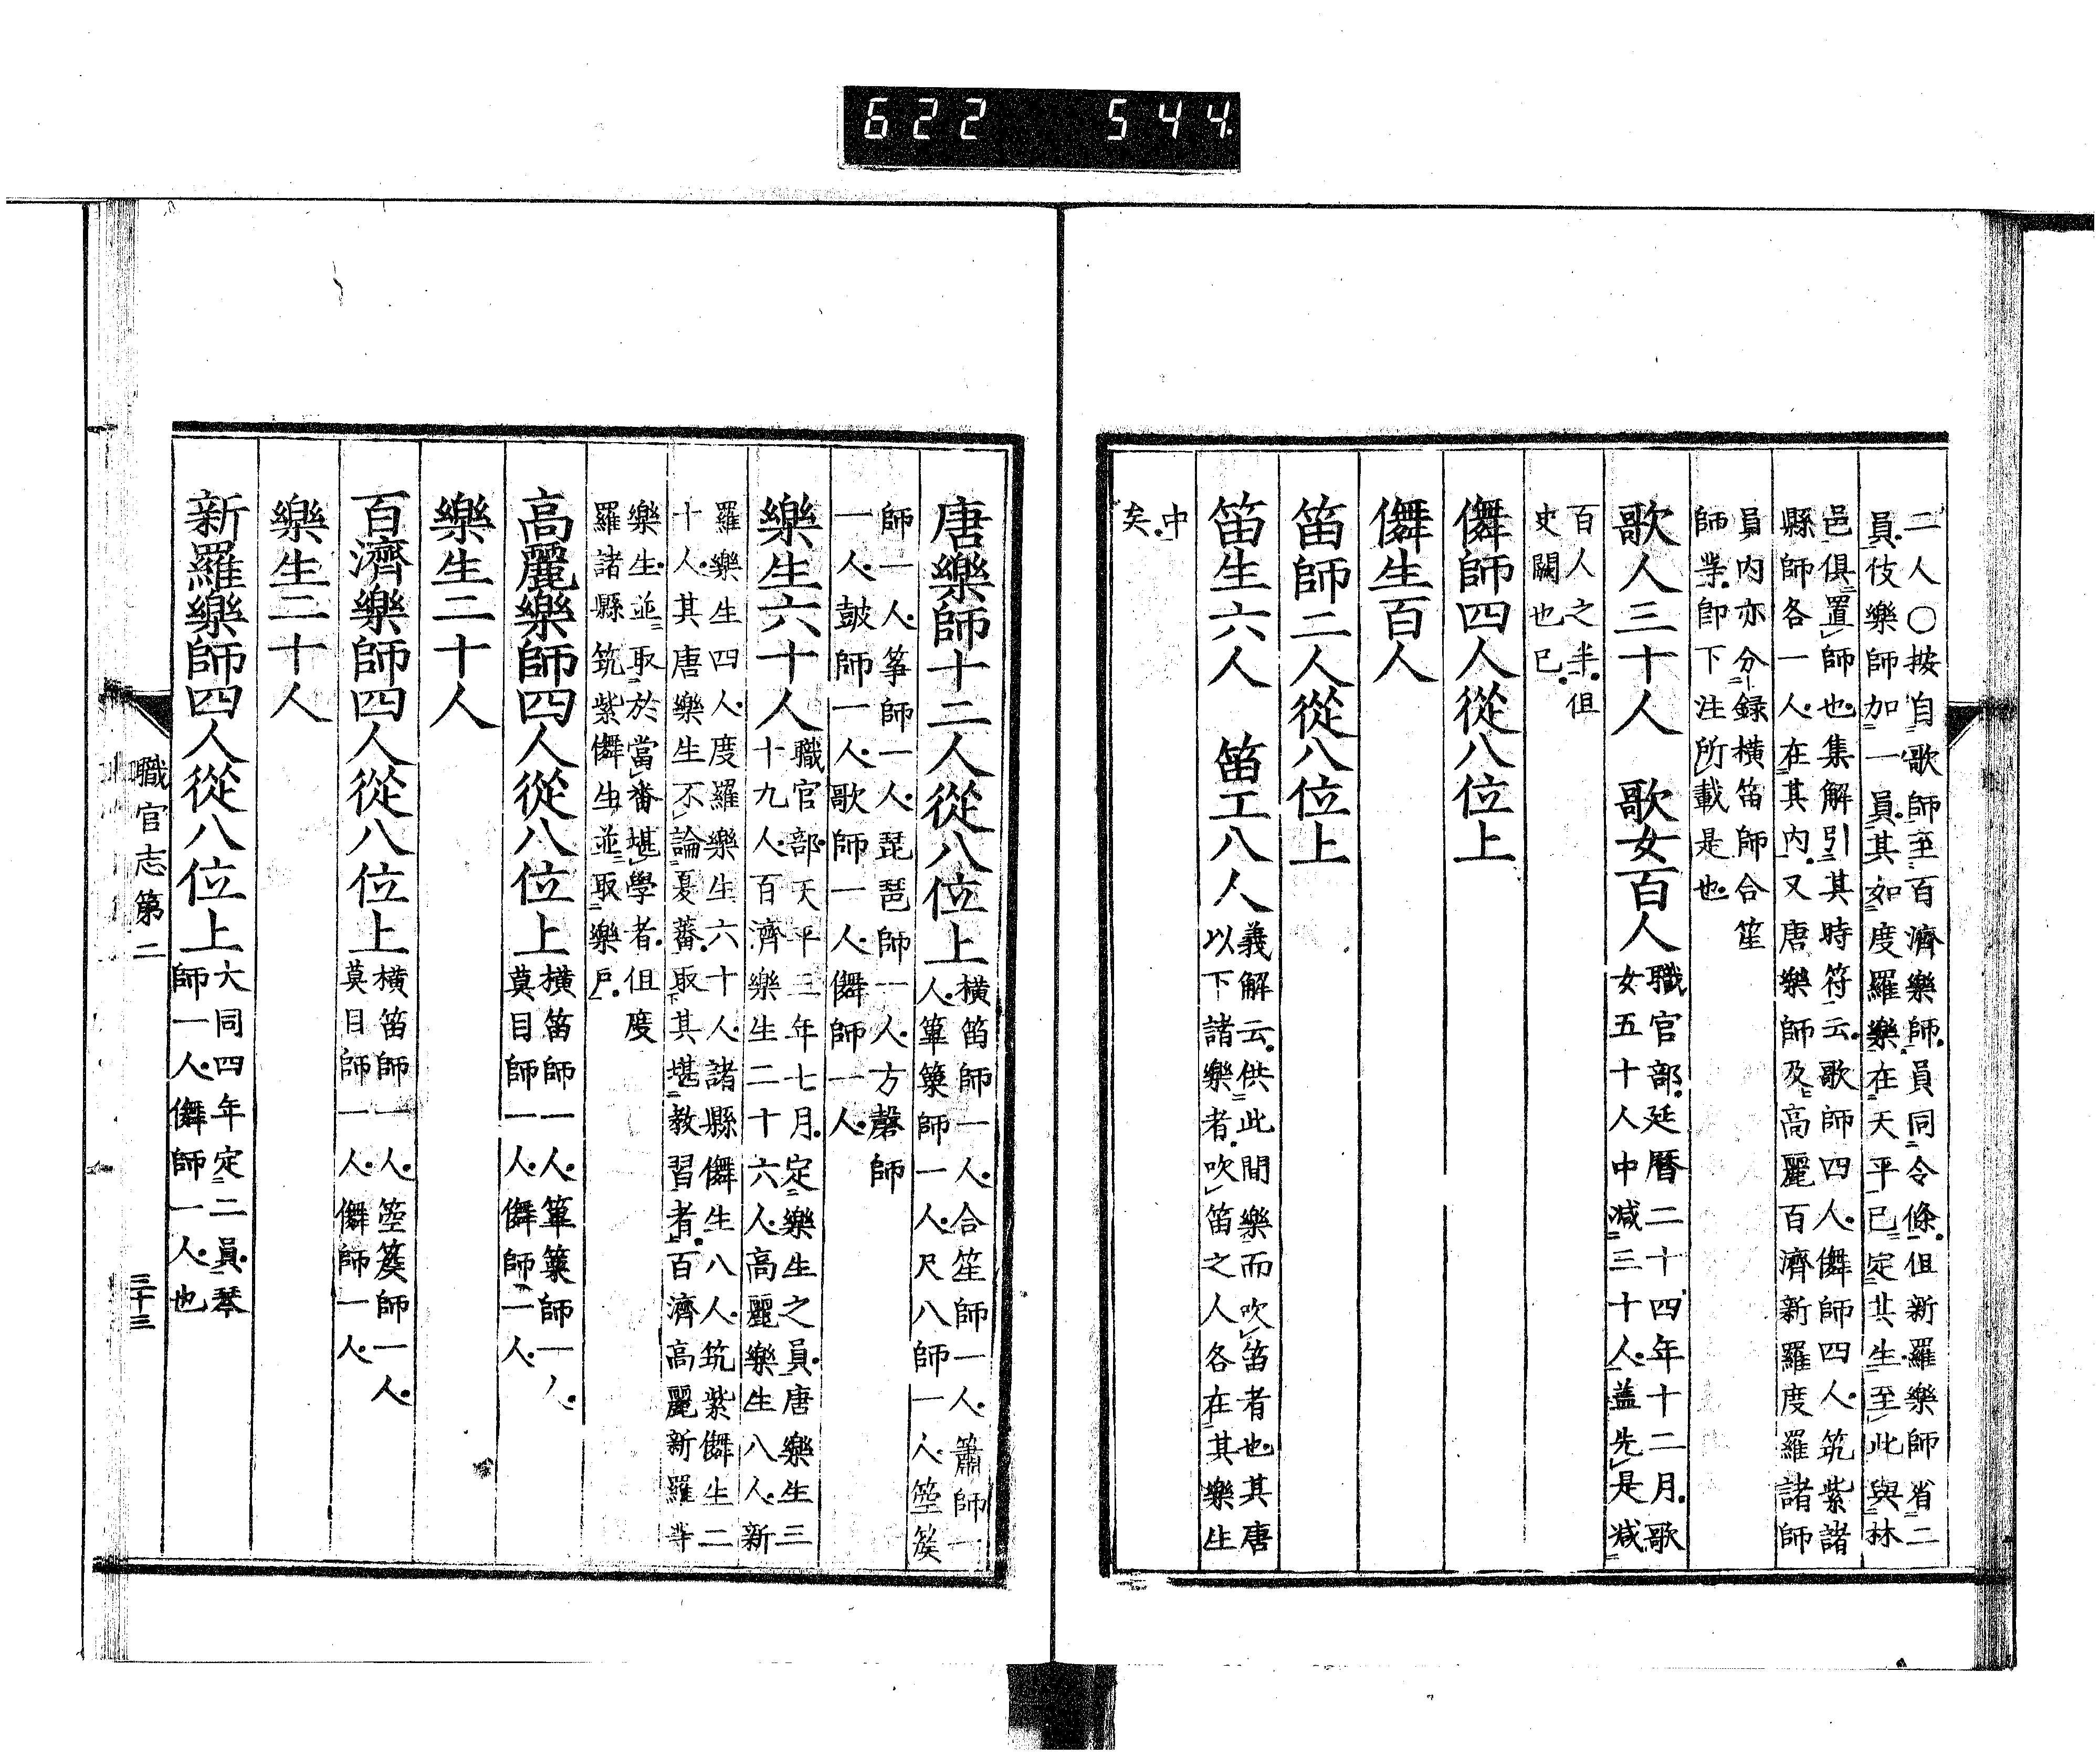 622 544.
二人〇按自歌師至百濟樂師員同令條但新羅樂師省二
員伎樂師加一員其如度羅樂在天平已定其生至此與林
邑俱置師也集解引其時符云歌師四人儛師四人筑紫諸
縣師各一人在其內又唐樂師及高麗百濟新羅度羅諸師
員內亦分錄橫笛師合笙
師業卽下注所載是也
歌人三十人　歌女百人
職官部延曆二十四年十二月歌
女五十人中減三十人蓋先是減
百人之半但
史闕也已
儛師四人從八位上
儛生百人
笛師二人從八位上
笛生六人　笛工八人
義解云供此間樂而吹笛者也其唐
以下諸樂者吹笛之人各在其樂生
中
矣
唐樂師十二人從八位上
橫笛師一人合笙師一人簫師一
人篳篥師一人尺八師一人箜篌
師一人箏師一人琵琶師一人方磬師
一人鼓師一人歌師一人儛師一人
樂生六十人
職官部天平三年七月定樂生之員唐樂生三
十九人百濟樂生二十六人高麗樂生八人新
羅樂生四人度羅樂生六十人諸縣儛生八人筑紫儛生二
十人其唐樂生不論夏蕃取其堪教習者百濟高麗新羅等
樂生並取於當蕃堪學者但度
羅諸縣筑紫儛生並取樂戶
高麗樂師四人從八位上
橫笛師一人篳篥師一人
莫目師一人儛師一人
樂生二十人
百濟樂師四人從八位上
橫笛師一人箜篌師一人
莫目師一人儛師一人
樂生二十人
新羅樂師四人從八位上
大同四年定二員琴
師一人儛師一人也
職官志第二
三十三